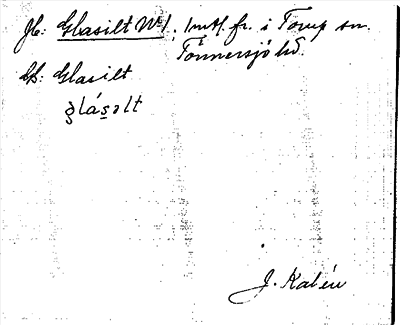 Jfr: Glasilt Nr 1, i Torup sn.
Tönnersjö hd.
Glasilt
glásəlt
J. Kalén